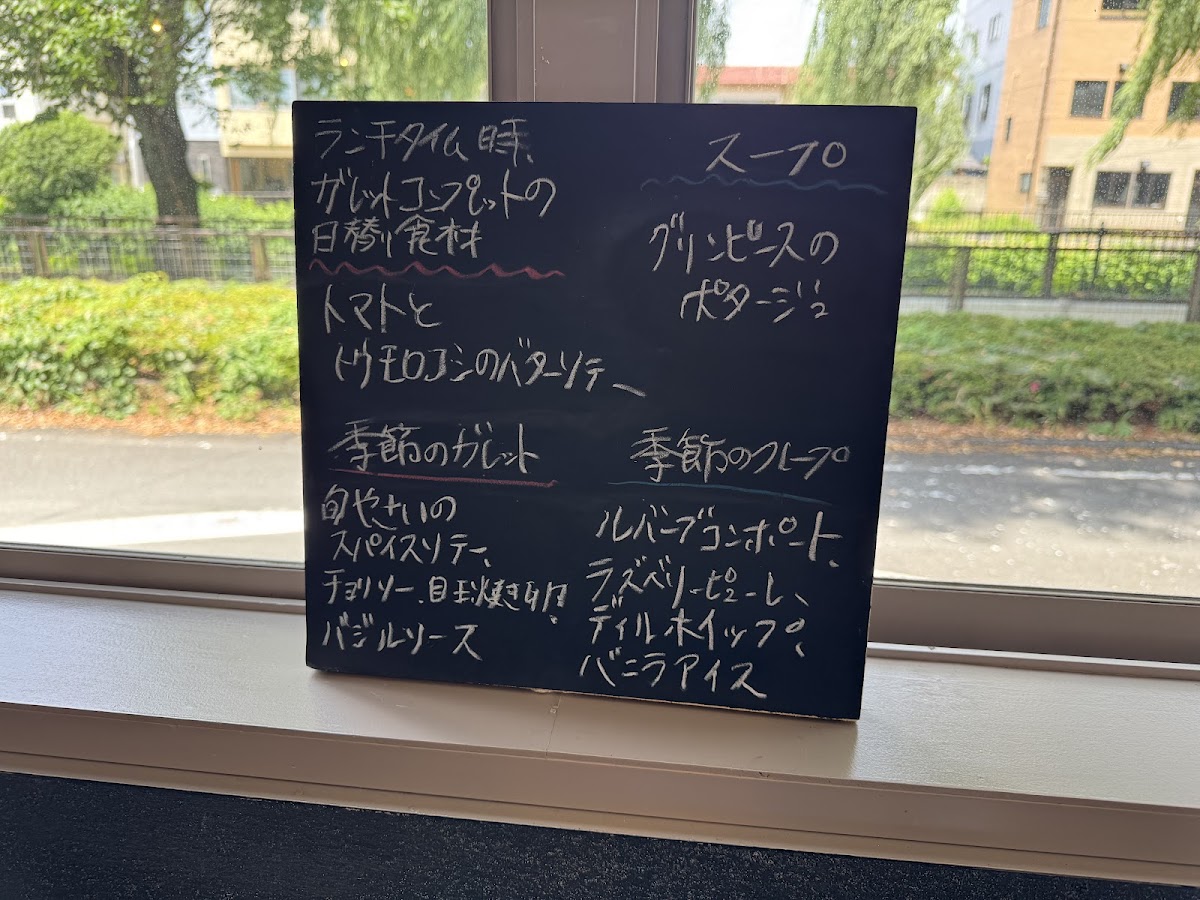 ランチタイム時、
ガレットコンプレットの
日替り食材
トマトと
トウモロコシのバターソテー
スープ
グリンピースの
ポタージュ
季節のガレット
旬やさいの
スパイスソテー、
チョリソー、目玉焼き卵、
バジルソース
季節のクレープ
ルバーブコンポート、
ラズベリーピューレ、
ディルホイップ、
バニラアイス